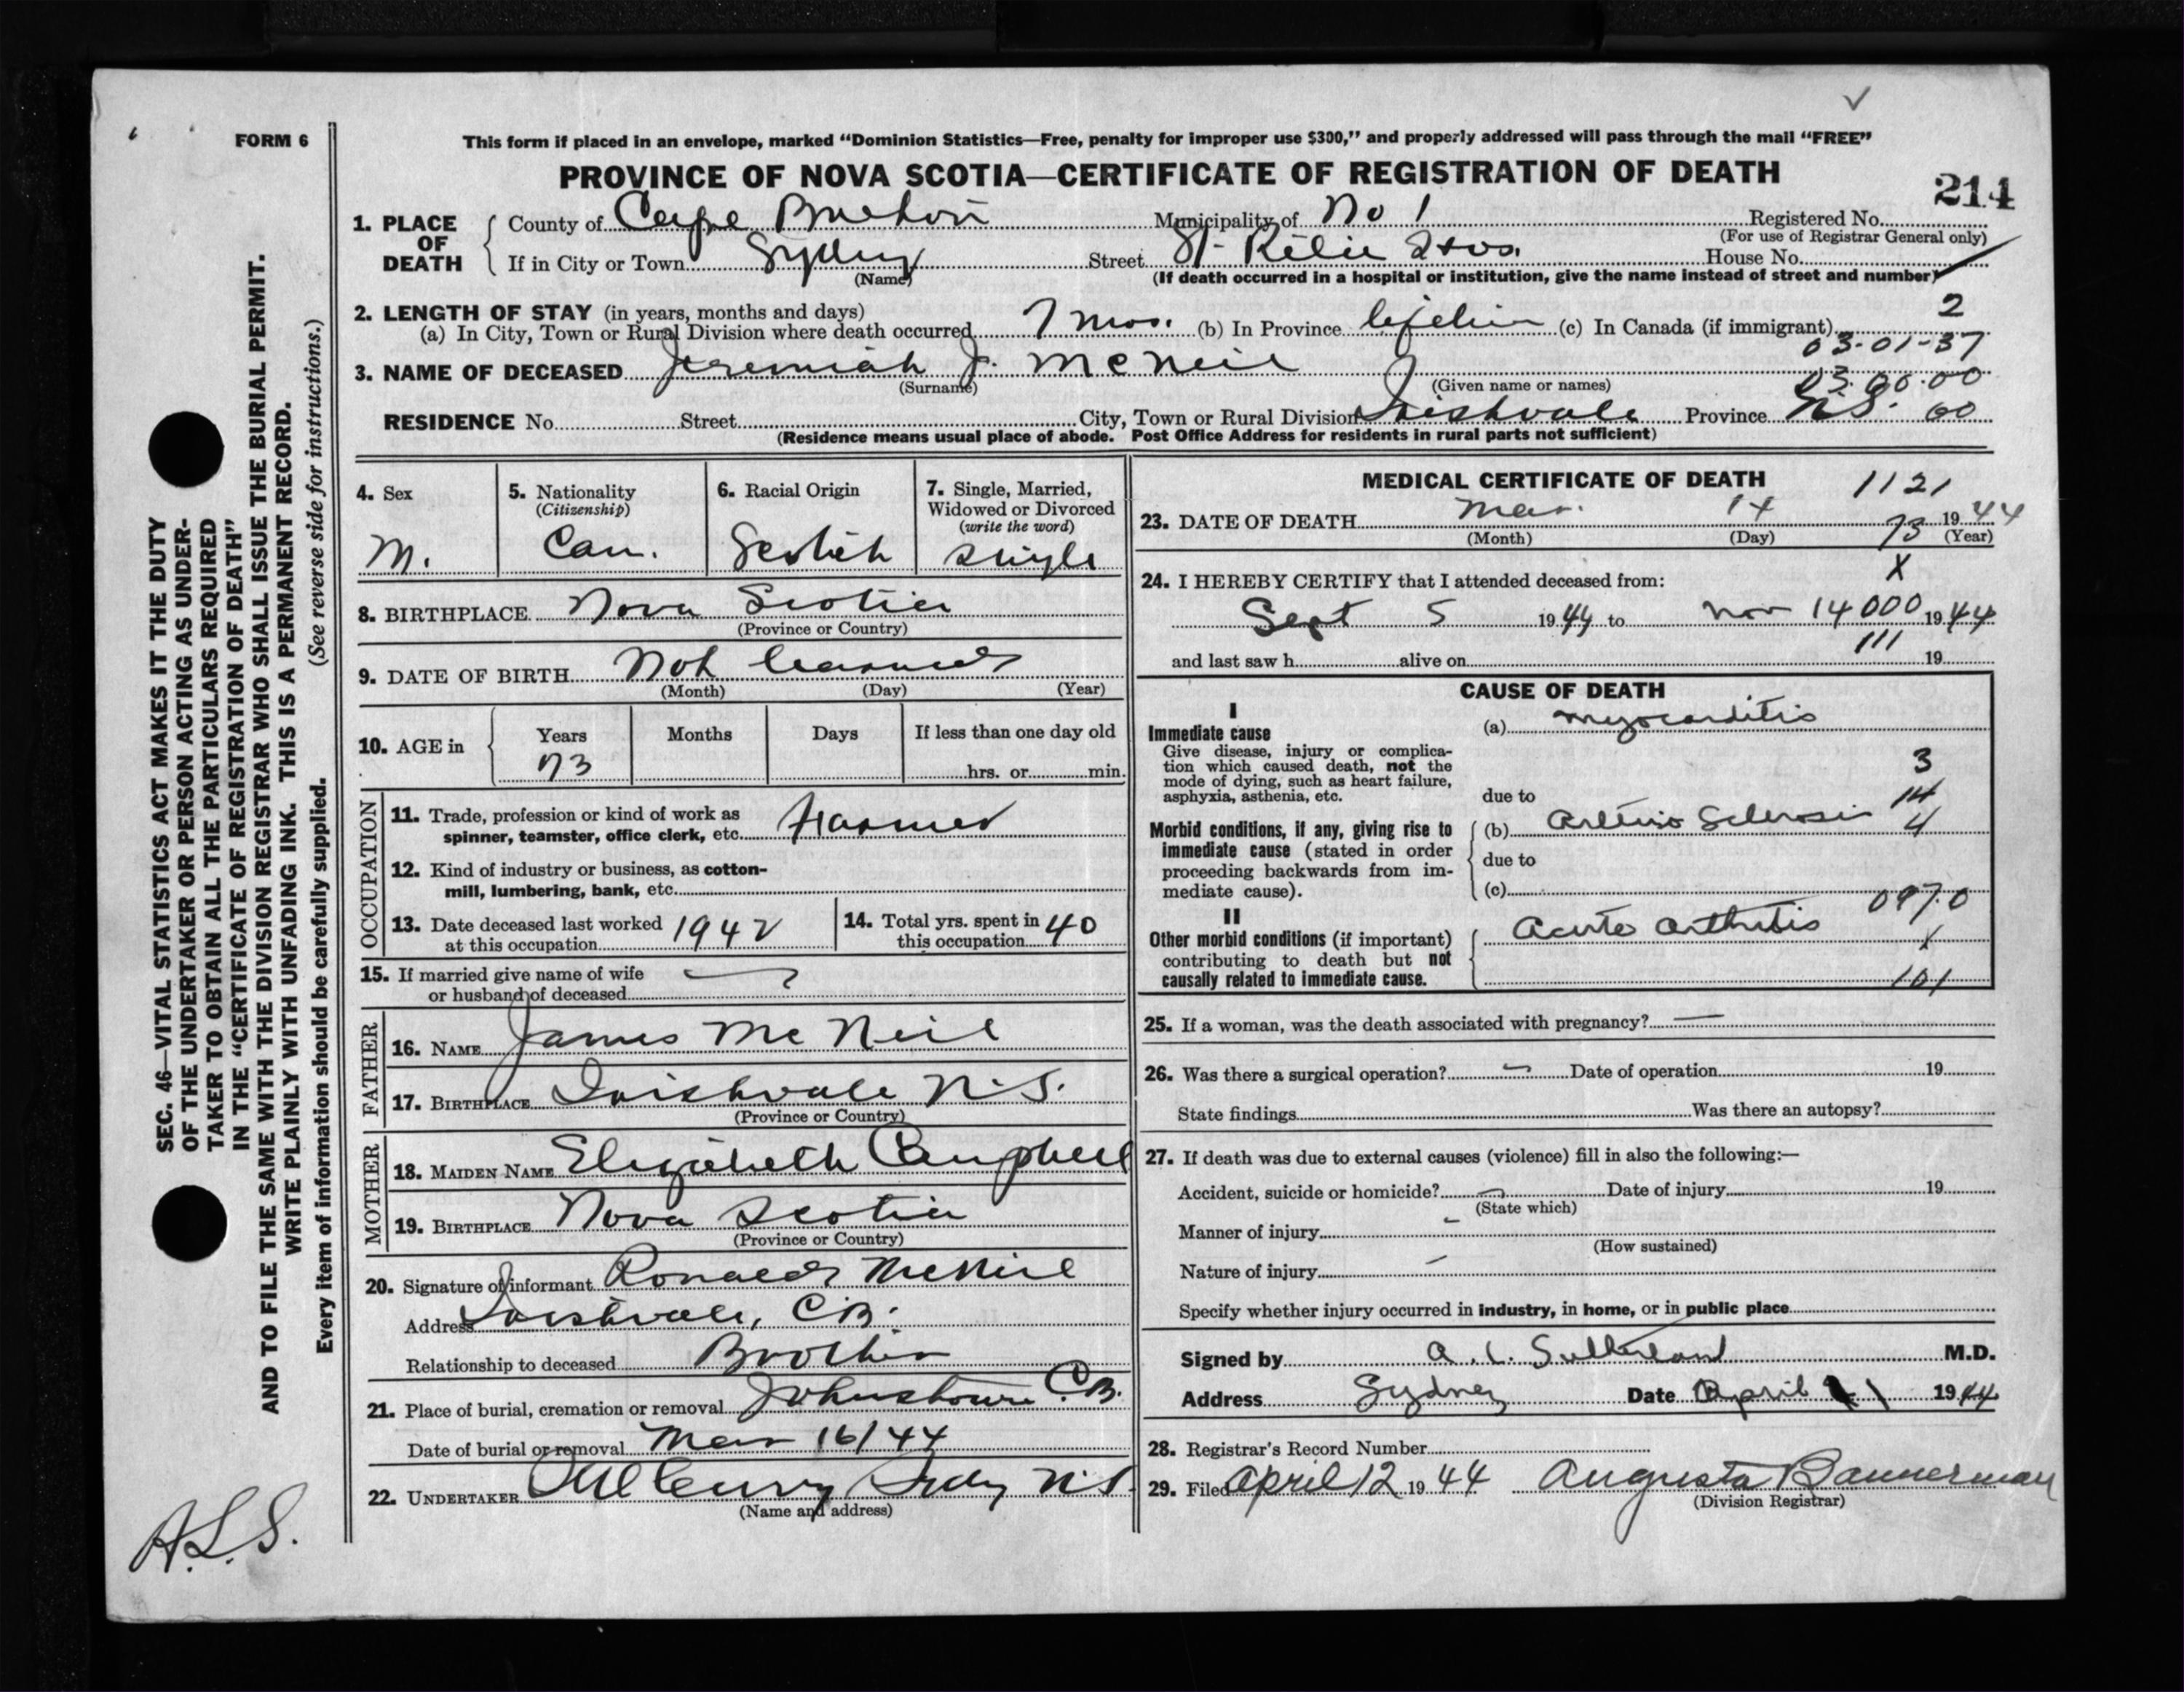 FORM 6
This form if placed in an envelope, marked "Dominion Statistics—Free, penalty for improper use $300," and properly addressed will pass through the mail "FREE"
PROVINCE OF NOVA SCOTIA—CERTIFICATE OF REGISTRATION OF DEATH
214
1. PLACE OF DEATH
County of Cape Breton Municipality of No 1 Registered No.
(For use of Registrar General only)
If in City or Town Sydney Street St. Hos. House No.
(Name) (If death occurred in a hospital or institution, give the name instead of street and number)
2. LENGTH OF STAY (in years, months and days)
2
(a) In City, Town or Rural Division where death occurred 7 mos. (b) In Province lifetime (c) In Canada (if immigrant)
03-01-37
3. NAME OF DECEASED Jeremiah J. McNeil
(Surname) (Given name or names)
03.00.00
RESIDENCE No. Street City, Town or Rural Division Irishvale Province N.S. 60
(Residence means usual place of abode. Post Office Address for residents in rural parts not sufficient)
4. Sex
M.
5. Nationality
(Citizenship)
Can.
6. Racial Origin
Scotich
7. Single, Married,
Widowed or Divorced
(write the word)
Single
8. BIRTHPLACE Nova Scotia
(Province or Country)
9. DATE OF BIRTH Not learned
(Month) (Day) (Year)
10. AGE in
Years Months Days If less than one day old
73 hrs. or min.
OCCUPATION
11. Trade, profession or kind of work as
spinner, teamster, office clerk, etc. Farmer
12. Kind of industry or business, as cotton-
mill, lumbering, bank, etc.
13. Date deceased last worked
at this occupation 1942
14. Total yrs. spent in
this occupation 40
15. If married give name of wife
or husband of deceased
FATHER
16. NAME James Mc Neil
17. BIRTHPLACE Irishvale N.S.
(Province or Country)
MOTHER
18. MAIDEN NAME Elizabeth Campbell
19. BIRTHPLACE Nova Scotia
(Province or Country)
20. Signature of informant Ronald McNeil
Address Irishvale, C.B.
Relationship to deceased Brother
21. Place of burial, cremation or removal Johnstown C.B.
Date of burial or removal Mar 16/44
22. UNDERTAKER Sydney N.S.
(Name and address)
MEDICAL CERTIFICATE OF DEATH
1121
23. DATE OF DEATH Mar. 14 1944
(Month) (Day) (Year)
73
24. I HEREBY CERTIFY that I attended deceased from:
X
Sept 5 1944 to Nov 14 000 1944
111
and last saw h alive on 19
CAUSE OF DEATH
I
Immediate cause
Give disease, injury or complica-
tion which caused death, not the
mode of dying, such as heart failure,
asphyxia, asthenia, etc.
(a) Myocarditis
3
due to
14
Morbid conditions, if any, giving rise to
immediate cause (stated in order
proceeding backwards from im-
mediate cause).
(b) Arterio Sclerosis
4
due to
(c)
097.0
II
Other morbid conditions (if important)
contributing to death but not
causally related to immediate cause.
Acute arthritis
X
101
25. If a woman, was the death associated with pregnancy? —
26. Was there a surgical operation? Date of operation 19
State findings Was there an autopsy?
27. If death was due to external causes (violence) fill in also the following:—
Accident, suicide or homicide? Date of injury 19
(State which)
Manner of injury
(How sustained)
Nature of injury
Specify whether injury occurred in industry, in home, or in public place
Signed by Sutherland M.D.
Address Sydney Date April 1 1944
28. Registrar's Record Number
29. Filed April 12 1944 Augusta Bannerman
(Division Registrar)
SEC. 46—VITAL STATISTICS ACT MAKES IT THE DUTY
OF THE UNDERTAKER OR PERSON ACTING AS UNDER-
TAKER TO OBTAIN ALL THE PARTICULARS REQUIRED
IN THE "CERTIFICATE OF REGISTRATION OF DEATH"
AND TO FILE THE SAME WITH THE DIVISION REGISTRAR WHO SHALL ISSUE THE BURIAL PERMIT.
WRITE PLAINLY WITH UNFADING INK. THIS IS A PERMANENT RECORD.
Every item of information should be carefully supplied. (See reverse side for instructions.)
A.L.S.